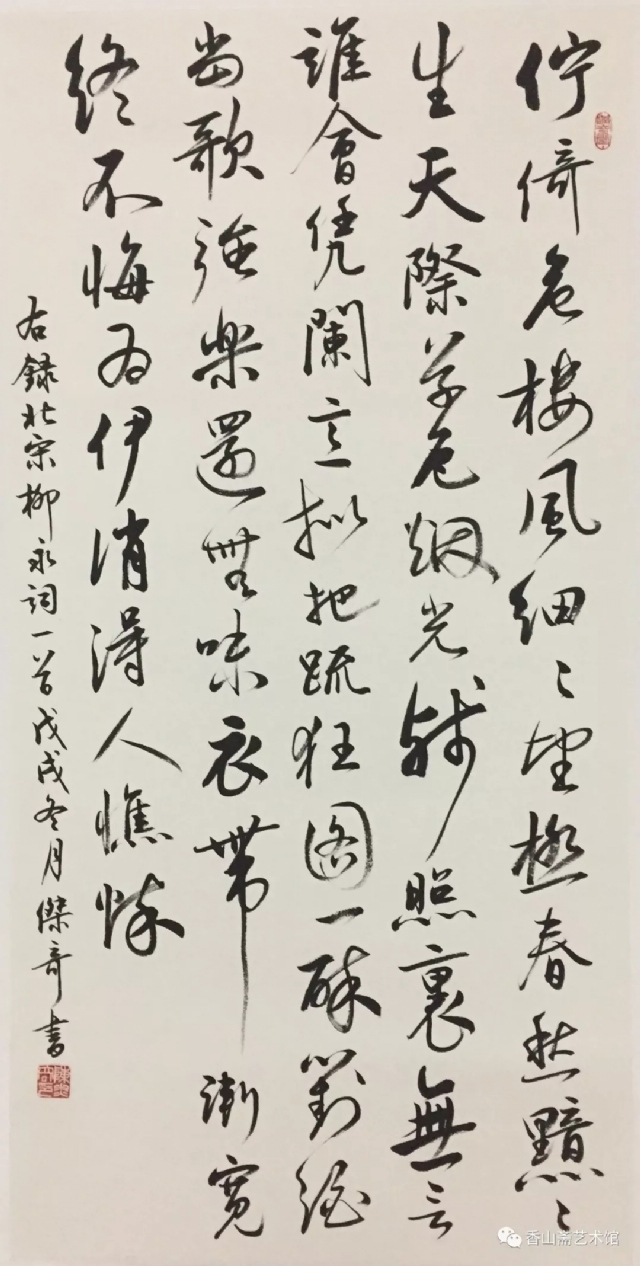 伫倚危楼風細〻望極春愁黯〻
生天際草色烟光残照裏無言
誰會凭闌意拟把疏狂图一醉對酒
當歌强樂還無味衣帶漸寛
終不悔为伊消得人憔悴
右録北宋柳永词一首戊戌冬月傑奇書
香山斋艺术馆